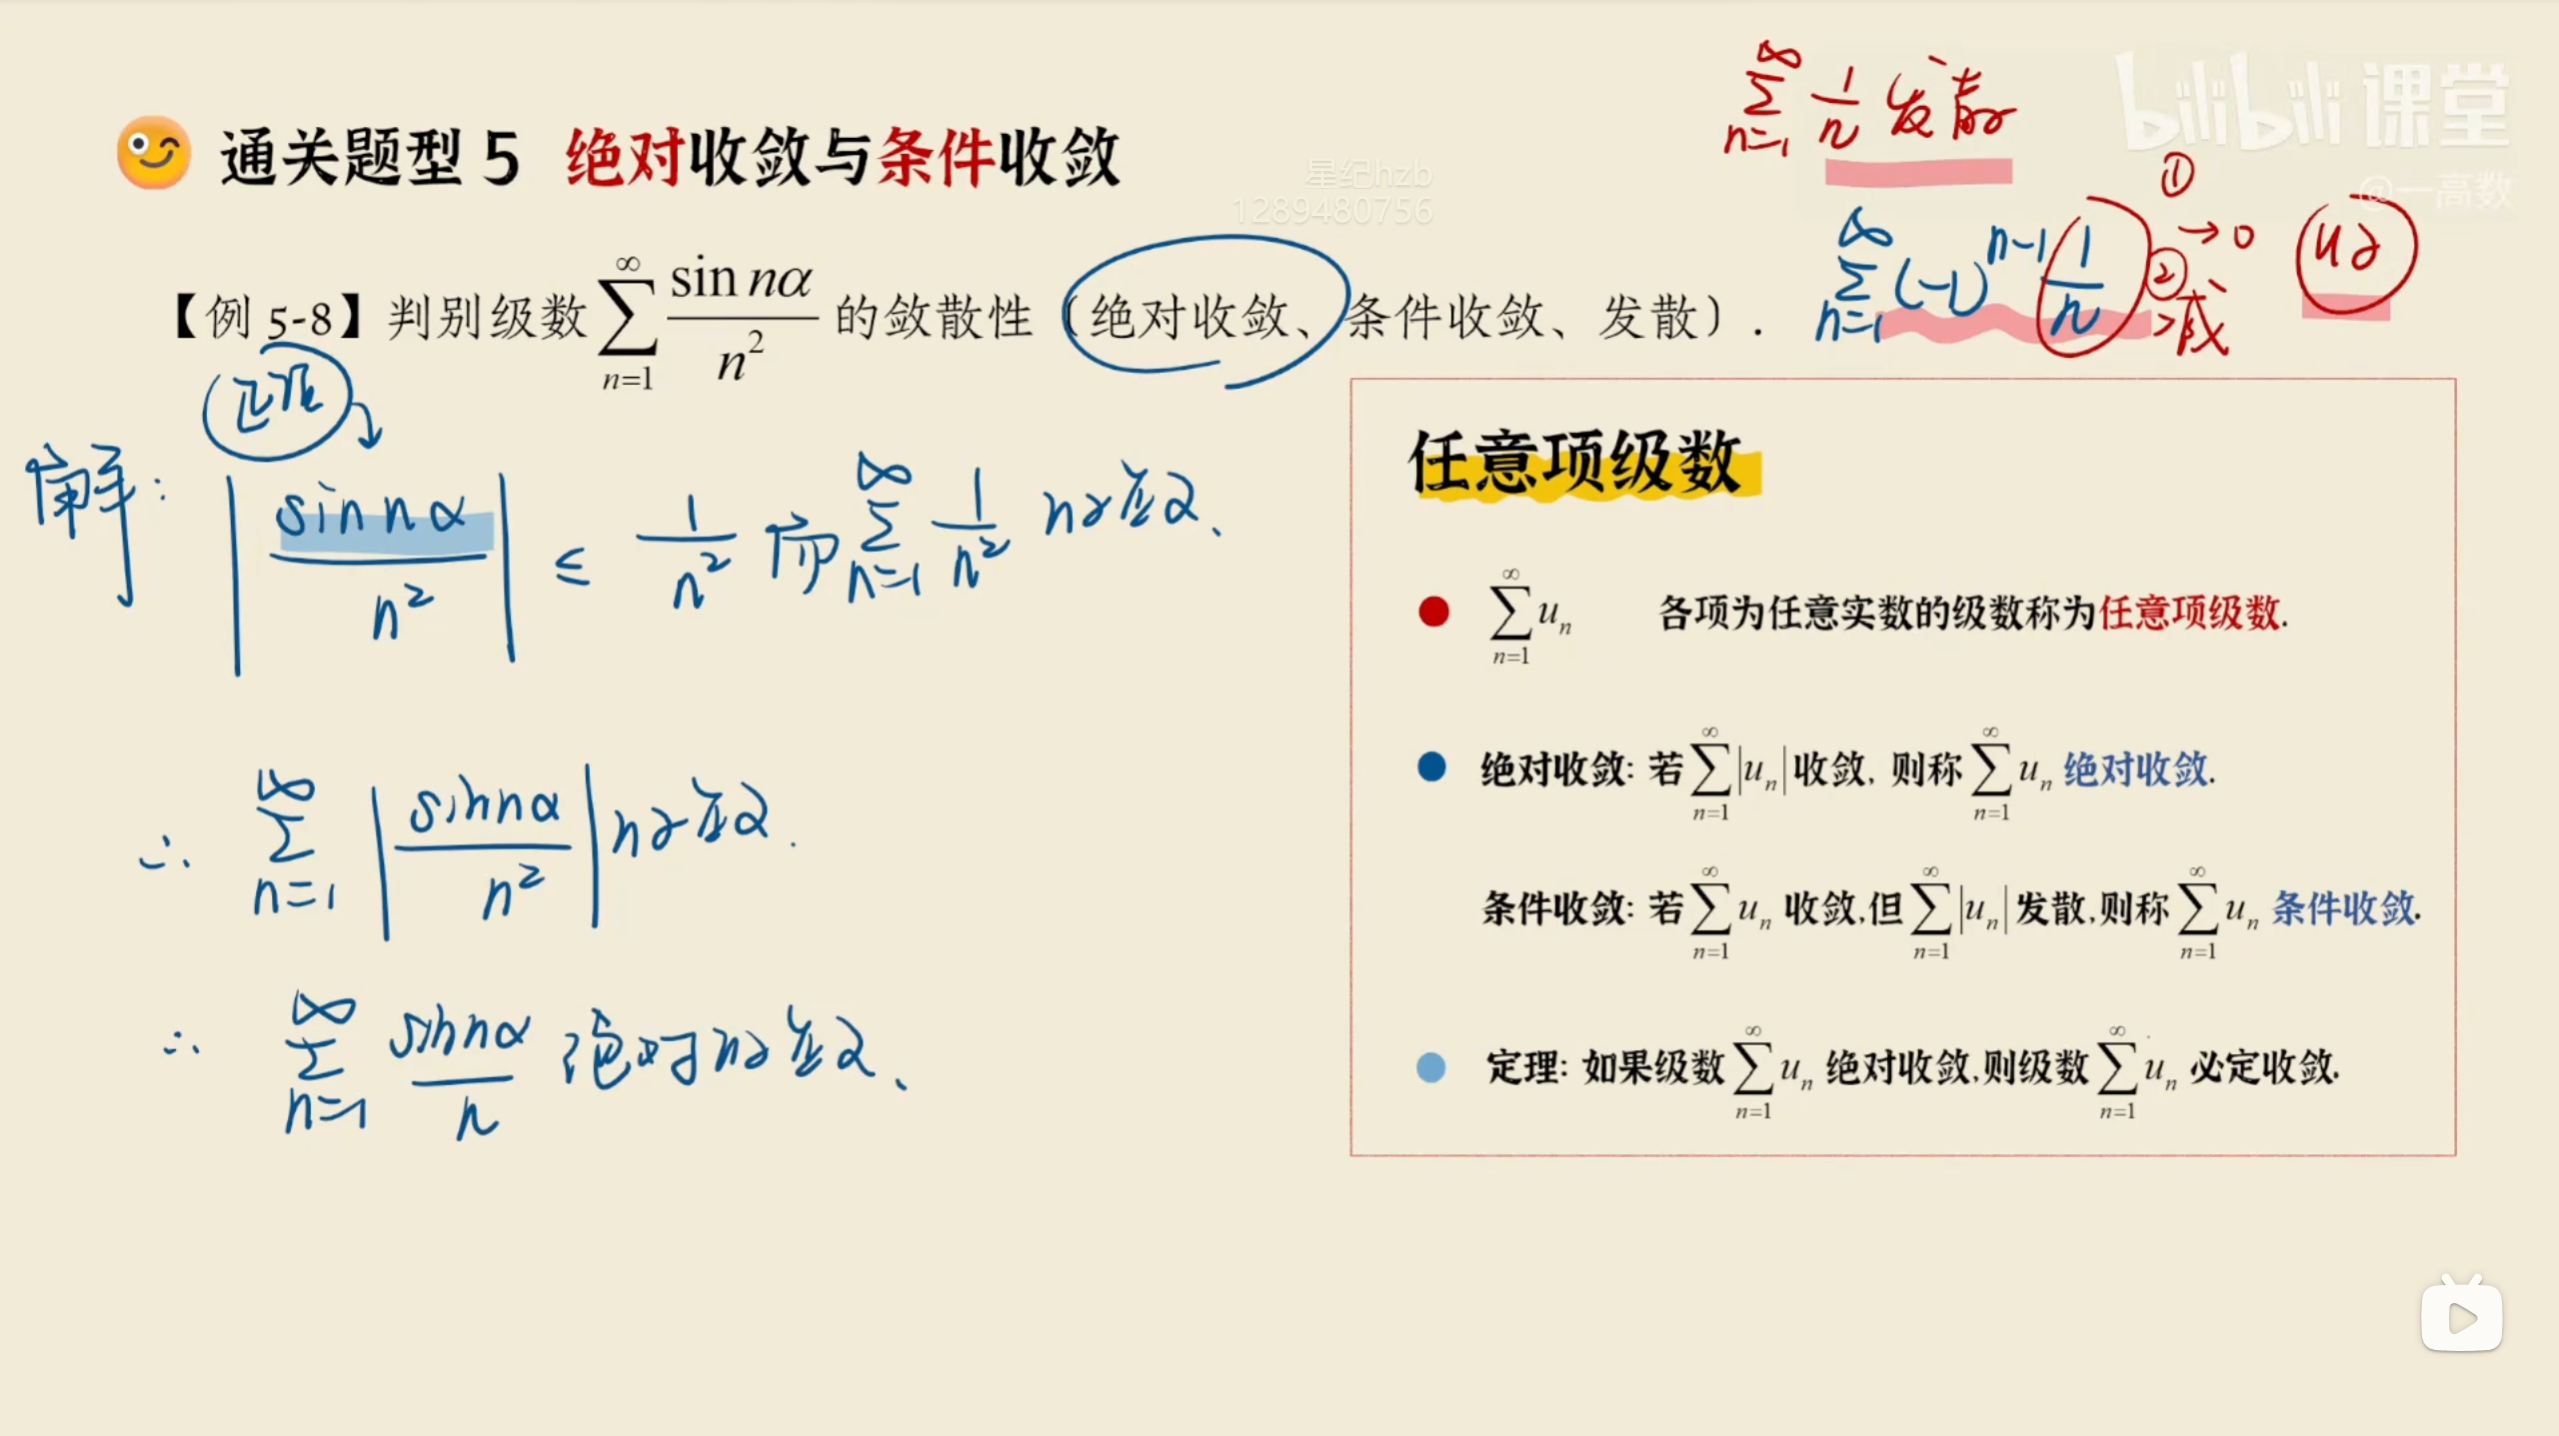 通关题型 5 绝对收敛与条件收敛
bilibili 课堂
@一高数
星纪hzb
1289480756
∞∑n=1 1/n 发散
∞∑n=1 (-1)^(n-1) 1/n ① →0 ② 减 收
【例 5-8】判别级数 ∞∑n=1 sin nα / n² 的敛散性（绝对收敛、条件收敛、发散）.
正项
解: | sin nα / n² | ≤ 1/n² 而 ∞∑n=1 1/n² 收敛、
∴ ∞∑n=1 | sin nα / n² | 收敛.
∴ ∞∑n=1 sin nα / n 绝对收敛、
任意项级数
∞∑n=1 uₙ 各项为任意实数的级数称为任意项级数.
绝对收敛: 若 ∞∑n=1 |uₙ| 收敛, 则称 ∞∑n=1 uₙ 绝对收敛.
条件收敛: 若 ∞∑n=1 uₙ 收敛,但 ∞∑n=1 |uₙ| 发散,则称 ∞∑n=1 uₙ 条件收敛.
定理: 如果级数 ∞∑n=1 uₙ 绝对收敛,则级数 ∞∑n=1 uₙ 必定收敛.